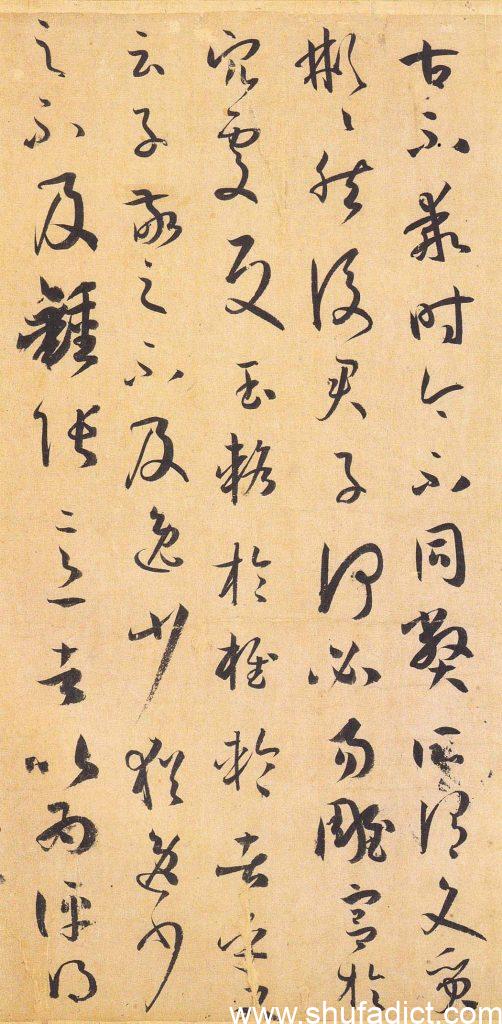 古不乖時今不同弊所謂文質
彬〻然後君子何必易雕宮於
穴處反玉輅於椎輪者乎又
云子敬之不及逸少猶逸少
之不及鍾張意者以為評得
www.shufadict.com